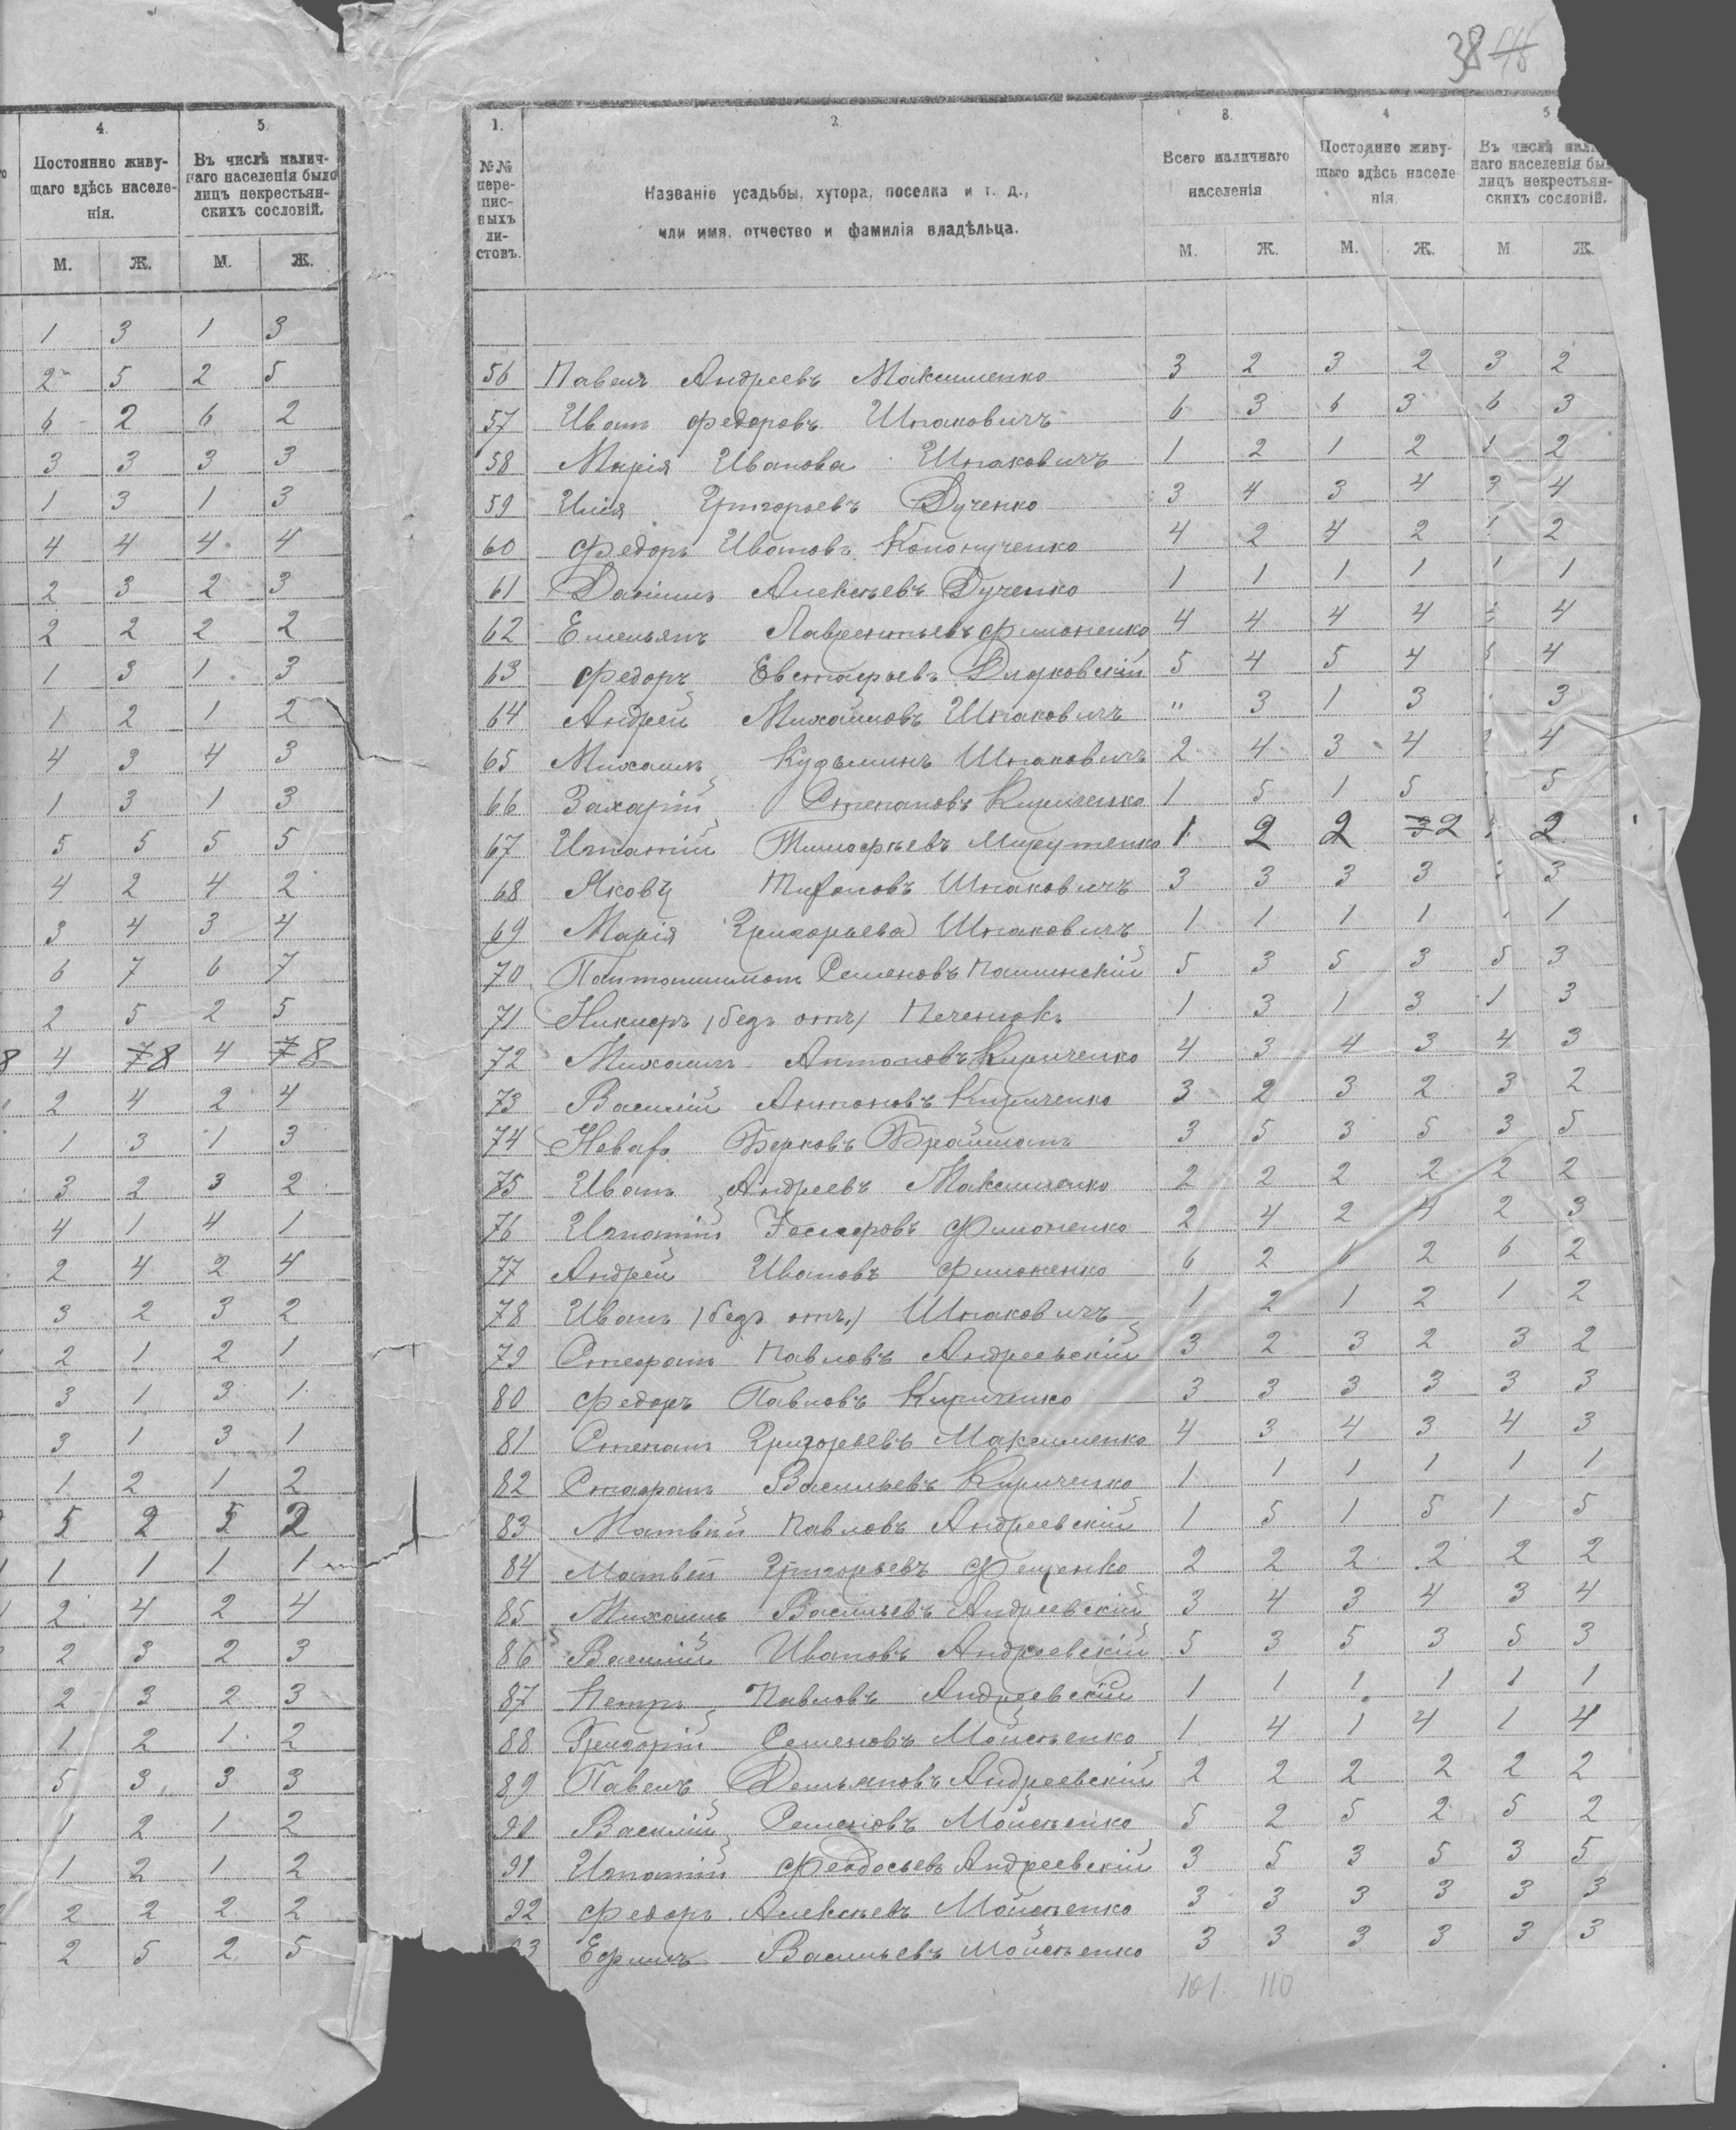 38 46
4. 5.
Постоянно живу- Въ числѣ налич-
щаго здѣсь населе- наго населенія было
нія. лицъ некрестьян-
скихъ сословій.
М. Ж. М. Ж.
1 3 1 3
2 5 2 5
6 2 6 2
3 3 3 3
1 3 1 3
4 4 4 4
2 3 2 3
2 2 2 2
1 3 1 3
1 2 1 2
4 3 4 3
1 3 1 3
5 5 5 5
4 2 4 2
3 4 3 4
6 7 6 7
2 5 2 5
8 4 7 8 4 7 8
2 4 2 4
1 3 1 3
3 2 3 2
4 1 4 1
2 4 2 4
3 2 3 2
2 1 2 1
3 1 3 1
3 1 3 1
1 2 1 2
5 2 5 2
1 1 1 1
2 4 2 4
2 3 2 3
2 3 2 3
1 2 1 2
5 3 3 3
1 2 1 2
1 2 1 2
2 2 2 2
2 5 2 5
1. 2. 3. 4 5
№№ пере-пис-ныхъ ли-стовъ.
Названіе усадьбы, хутора, поселка и т. д.,
или имя, отчество и фамилія владѣльца.
Всего наличнаго
населенія
Постоянно живу-
щаго здѣсь населе
нія.
Въ числѣ нал
наго населенія бы
лицъ некрестьян-
скихъ сословій.
М. Ж. М. Ж. М. Ж.
56 Павелъ Андреевъ Максименко 3 2 3 2 3 2
57 Иванъ Федоровъ Шпаковичъ 6 3 6 3 6 3
58 Марія Иванова Шпаковичъ 1 2 1 2 1 2
59 Илія Григорьевъ Дученко 3 4 3 4 3 4
60 Федоръ Ивановъ 4 2 4 2 2
61 Даніилъ Алексѣевъ Дученко 1 1 1 1 1 1
62 Емельянъ Лаврентьевъ Филоненко 4 4 4 4 4
63 Федоръ Евстафьевъ 5 4 5 4 4
64 Андрей Михайловъ Шпаковичъ " 3 1 3 3
65 Михаилъ Кузьминъ Шпаковичъ 2 4 3 4 4
66 Захарій Степановъ Кириченко 1 5 1 5 5
67 Игнатій Тимофѣевъ 1 2 2 3 2 2
68 Яковъ Шпаковичъ 3 3 3 3 3
69 Марія Григорьева Шпаковичъ 1 1 1 1 1 1
70 Семеновъ 5 3 5 3 5 3
71 (безъ отч) Печенюкъ 1 3 1 3 1 3
72 Михаилъ Антоновъ Кириченко 4 3 4 3 4 3
73 Василій Антоновъ Кириченко 3 2 3 2 3 2
74 Берковъ 3 5 3 5 3 5
75 Иванъ Андреевъ Максименко 2 2 2 2 2 2
76 Игнатій Филоненко 2 4 2 4 2 3
77 Андрей Ивановъ Филоненко 6 2 6 2 6 2
78 Иванъ (безъ отч.) Шпаковичъ 1 2 1 2 1 2
79 Стефанъ Павловъ Андреевскій 3 2 3 2 3 2
80 Федоръ Павловъ Кириченко 3 3 3 3 3 3
81 Степанъ Григорьевъ Максименко 4 3 4 3 4 3
82 Стафанъ Васильевъ Кириченко 1 1 1 1 1 1
83 Матвѣй Павловъ Андреевскій 1 5 1 5 1 5
84 Матвѣй Григорьевъ Фещенко 2 2 2 2 2 2
85 Михаилъ Васильевъ Андреевскій 3 4 3 4 3 4
86 Василій Ивановъ Андреевскій 5 3 5 3 5 3
87 Петръ Павловъ Андреевскій 1 1 1 1 1 1
88 Григорій Семеновъ Мойсѣенко 1 4 1 4 1 4
89 Павелъ Демьяновъ Андреевскій 2 2 2 2 2 2
90 Василій Семеновъ Мойсѣенко 5 2 5 2 5 2
91 Игнатій Феодосьевъ Андреевскій 3 5 3 5 3 5
92 Федоръ Алексѣевъ Мойсѣенко 3 3 3 3 3 3
93 Ефимъ Васильевъ Мойсѣенко 3 3 3 3 3 3
101 110